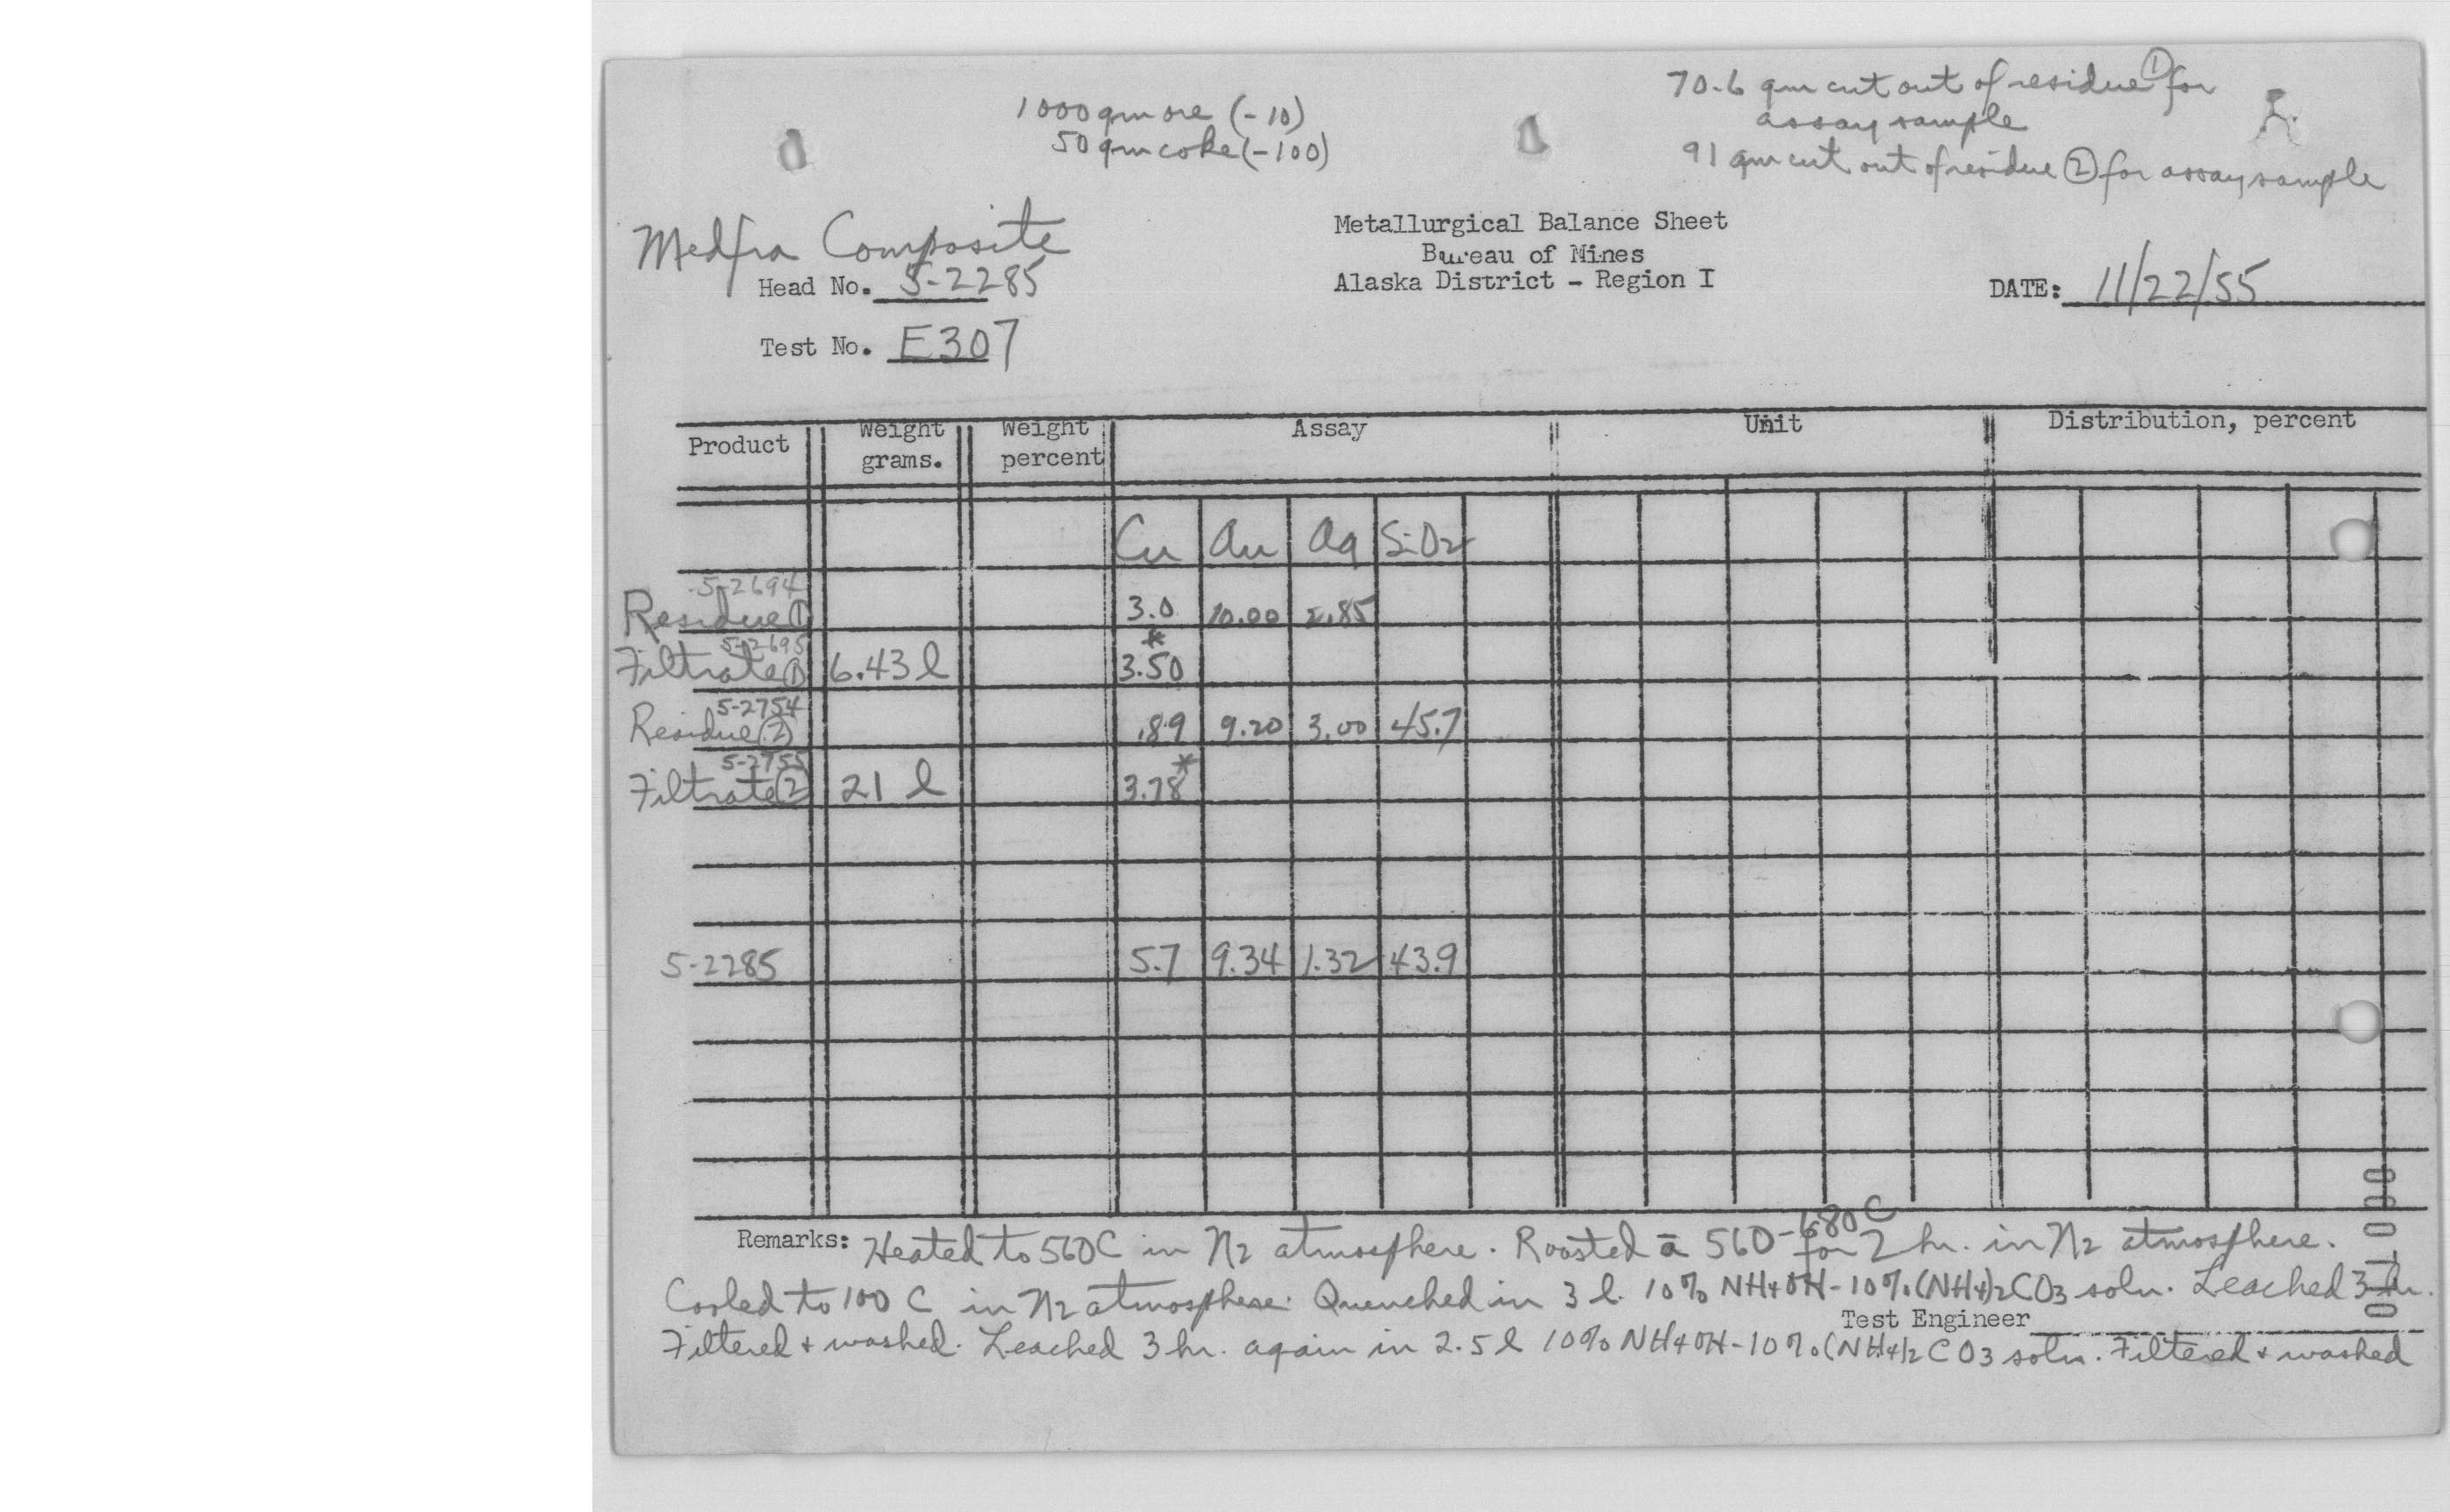 70.6 gm cut out of residue ① for
assay sample
91 gm cut out of residue ② for assay sample
1000 gm ore (-10)
50 gm coke (-100)
Medfra Composite
Metallurgical Balance Sheet
Bureau of Mines
Alaska District - Region I
Head No. 5-2285
DATE: 11/22/55
Test No. E307
Product Weight grams. Weight percent Assay Unit Distribution, percent
Cu Au Ag SiO2
5-2694
Residue ① 3.0 10.00 2.85
5-2695 *
Filtrate ① 6.43 l 3.50
5-2754
Residue ② .89 9.20 3.00 45.7
5-2755 *
Filtrate ② 21 l 3.78
5-2285 5.7 9.34 1.32 43.9
Remarks: Heated to 560 C in N2 atmosphere. Roasted a 560-680 C for 2 hr. in N2 atmosphere.
Cooled to 100 C in N2 atmosphere. Quenched in 3 l. 10% NH4OH-10% (NH4)2CO3 soln. Leached 3 hr.
Test Engineer
Filtered + washed. Leached 3 hr. again in 2.5 l 10% NH4OH-10% (NH4)2CO3 soln. Filtered + washed